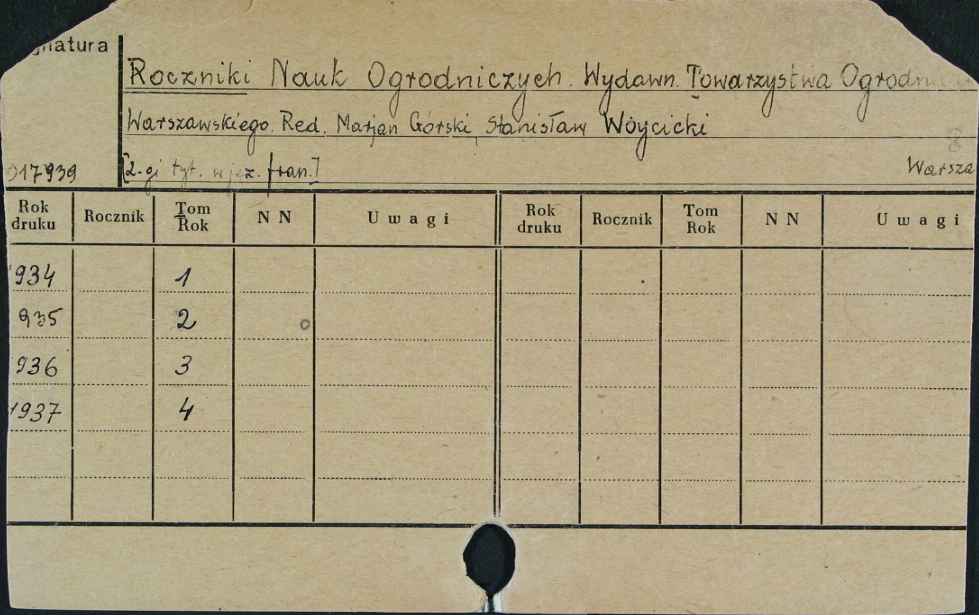 gnatura
Roczniki Nauk Ogrodniczych. Wydawn. Towarzystwa Ogrodn
Warszawskiego. Red. Marjan Górski, Stanisław Wóycicki
017939 [2-gi tyt. w jęz. fran.] Warsza
Rok druku Rocznik Tom Rok N N Uwagi Rok druku Rocznik Tom Rok N N Uwagi
934 1
935 2
936 3
1937 4